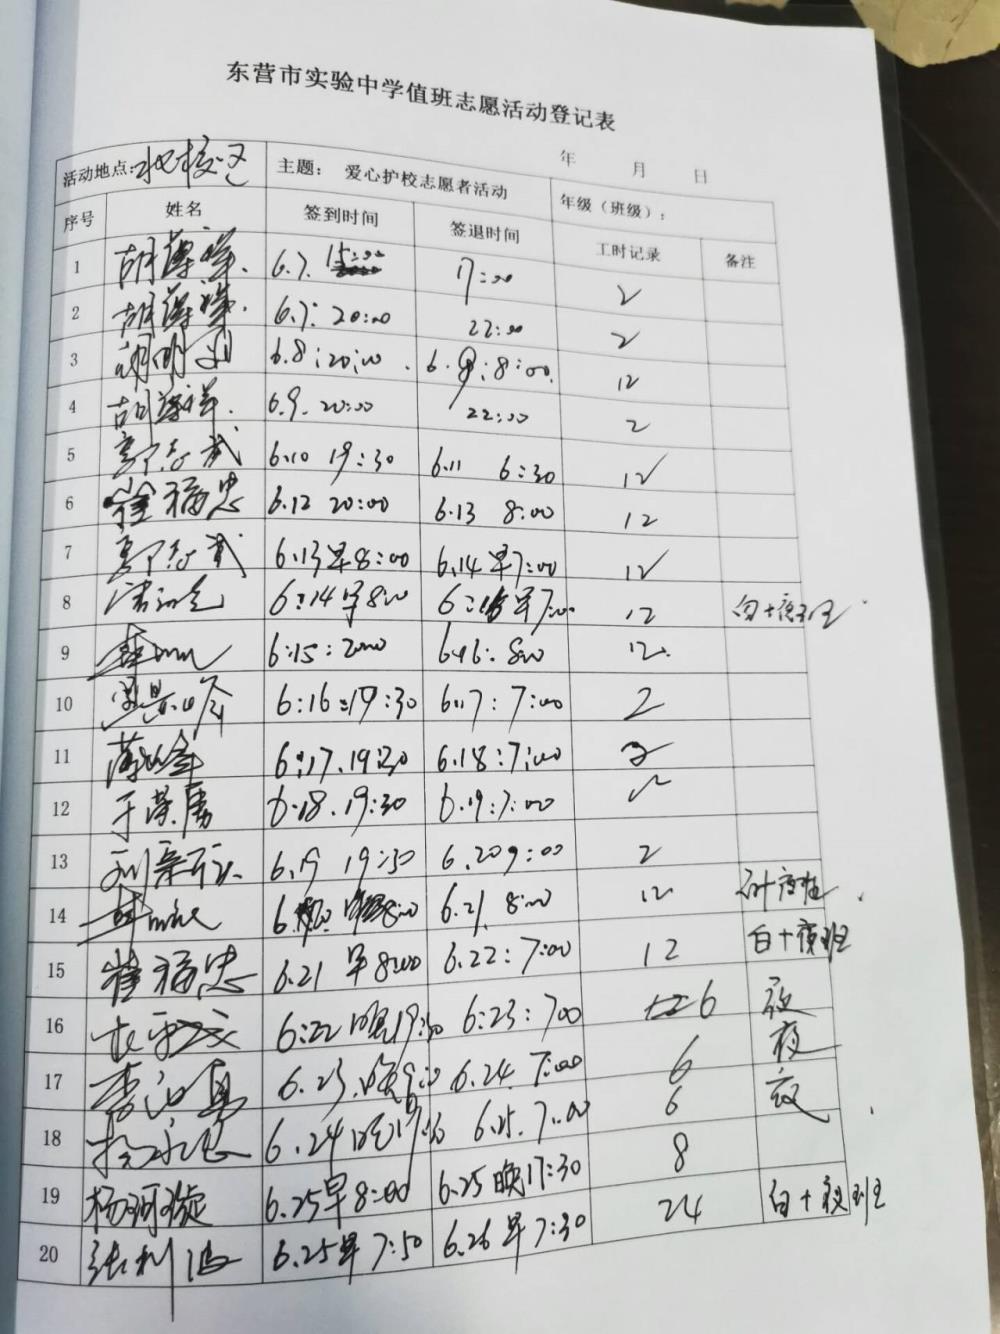 东营市实验中学值班志愿活动登记表
年 月 日
活动地点: 校区 主题： 爱心护校志愿者活动 年级（班级）：
序号 姓名 签到时间 签退时间 工时记录 备注
1 胡薄祥. 6.7. 15:00 17:00 2
2 胡薄祥. 6.7: 20:00 22:00 2
3 6.8:20:00. 6.9:8:00. 12
4 胡薄祥. 6.9. 20:00 22:00 2
5 郭志武 6.10 19:30 6.11 6:30 12
6 崔福忠 6.12 20:00 6.13 8:00 12
7 郭志武 6.13早8:00 6.14早7:00 12
8 6:14早800 6:15早7:00. 12 白+夜班
9 6:15:2000 6.16:800 12.
10 6:16:19:30 6.17:7:00 2
11 6:17.19:30 6.18:7:00 2
12 于荣勇 6.18.19:30 6.19:7:00
13 6.19 19:30 6.20 9:00 2
14 6.20 8:00 6.21. 8:00 12 白+夜班
15 崔福忠 6.21 早8:00 6.22:7:00 12 白+夜班
16 6:22晚19:30 6:23:700 6 夜
17 6.23.晚 6.24.7:00 6 夜
18 6.24晚 6.25.7:00 6 夜
19 杨珂璇 6.25早8:00 6.25晚17:30 8
20 张利波 6.25早7:50 6.26早7:30 24 白+夜班